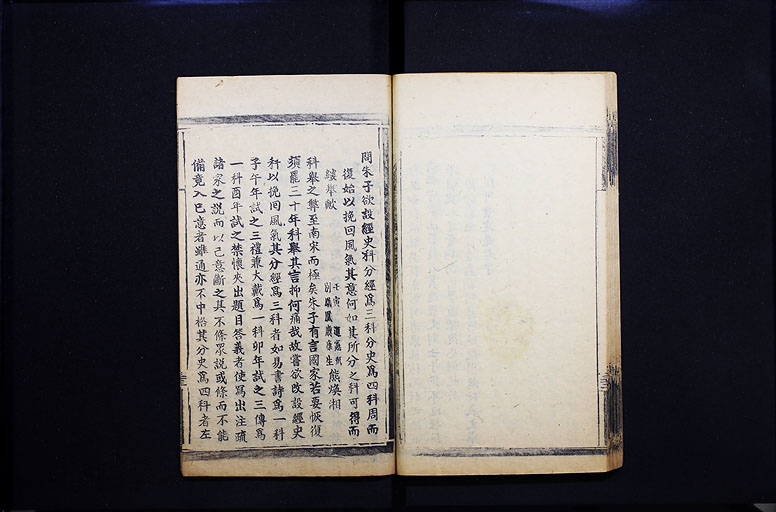 問朱子欲設經史科分經爲三科分史爲四科周而
復始以挽回風氣其意何如其所分之科可得而
縷舉歟
壬寅
別號 康生
熊煥湘
科舉之弊至南宋而極矣朱子有言國家若要恢復
須罷三十年科舉其言抑何痛哉故嘗欲改設經史
科以挽回風氣其分經爲三科者如易書詩爲一科
子午年試之三禮兼大戴爲一科卯年試之三傳爲
一科酉年試之禁懷夾出題目答義者使寫出注疏
諸家之説而以己意斷之其不條眾説或條而不能
備竟入己意者雖通亦不中格其分史爲四科者左